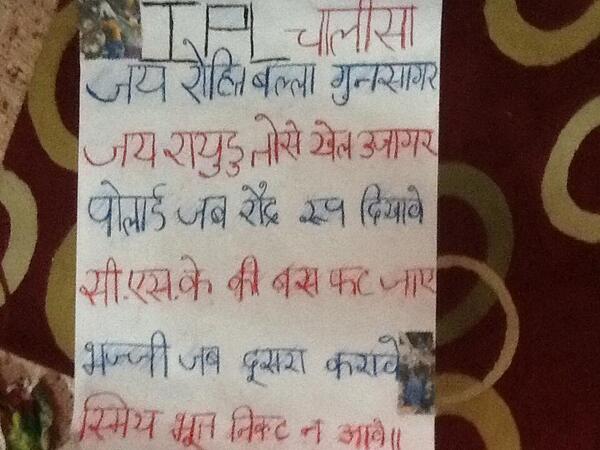 IPL चालीसा
जय रोहित बल्ला गुनसागर
जय रायुडु तोसे खेल उजागर
पोलार्ड जब रौद्र रूप दिखावे
सी.एस.के. की बस फट जाए
भज्जी जब दूसरा करावे
स्मिथ भूत निकट न आवे॥